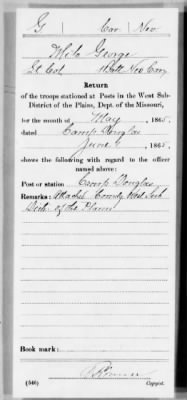 G | Cav | Nev
George
Lt Col 1 Batt Nev Cav
Return
of the troops stationed at Posts in the West Sub-
District of the Plains, Dept. of the Missouri,
for the month of May, 1865.
dated Camp Douglas
June 1, 1865.
shows the following with regard to the officer
named above:
Post or station Camp Douglas
Remarks: Attached Comdg West Sub
Dist. of the Plains
Book mark:
(546) Copyist.